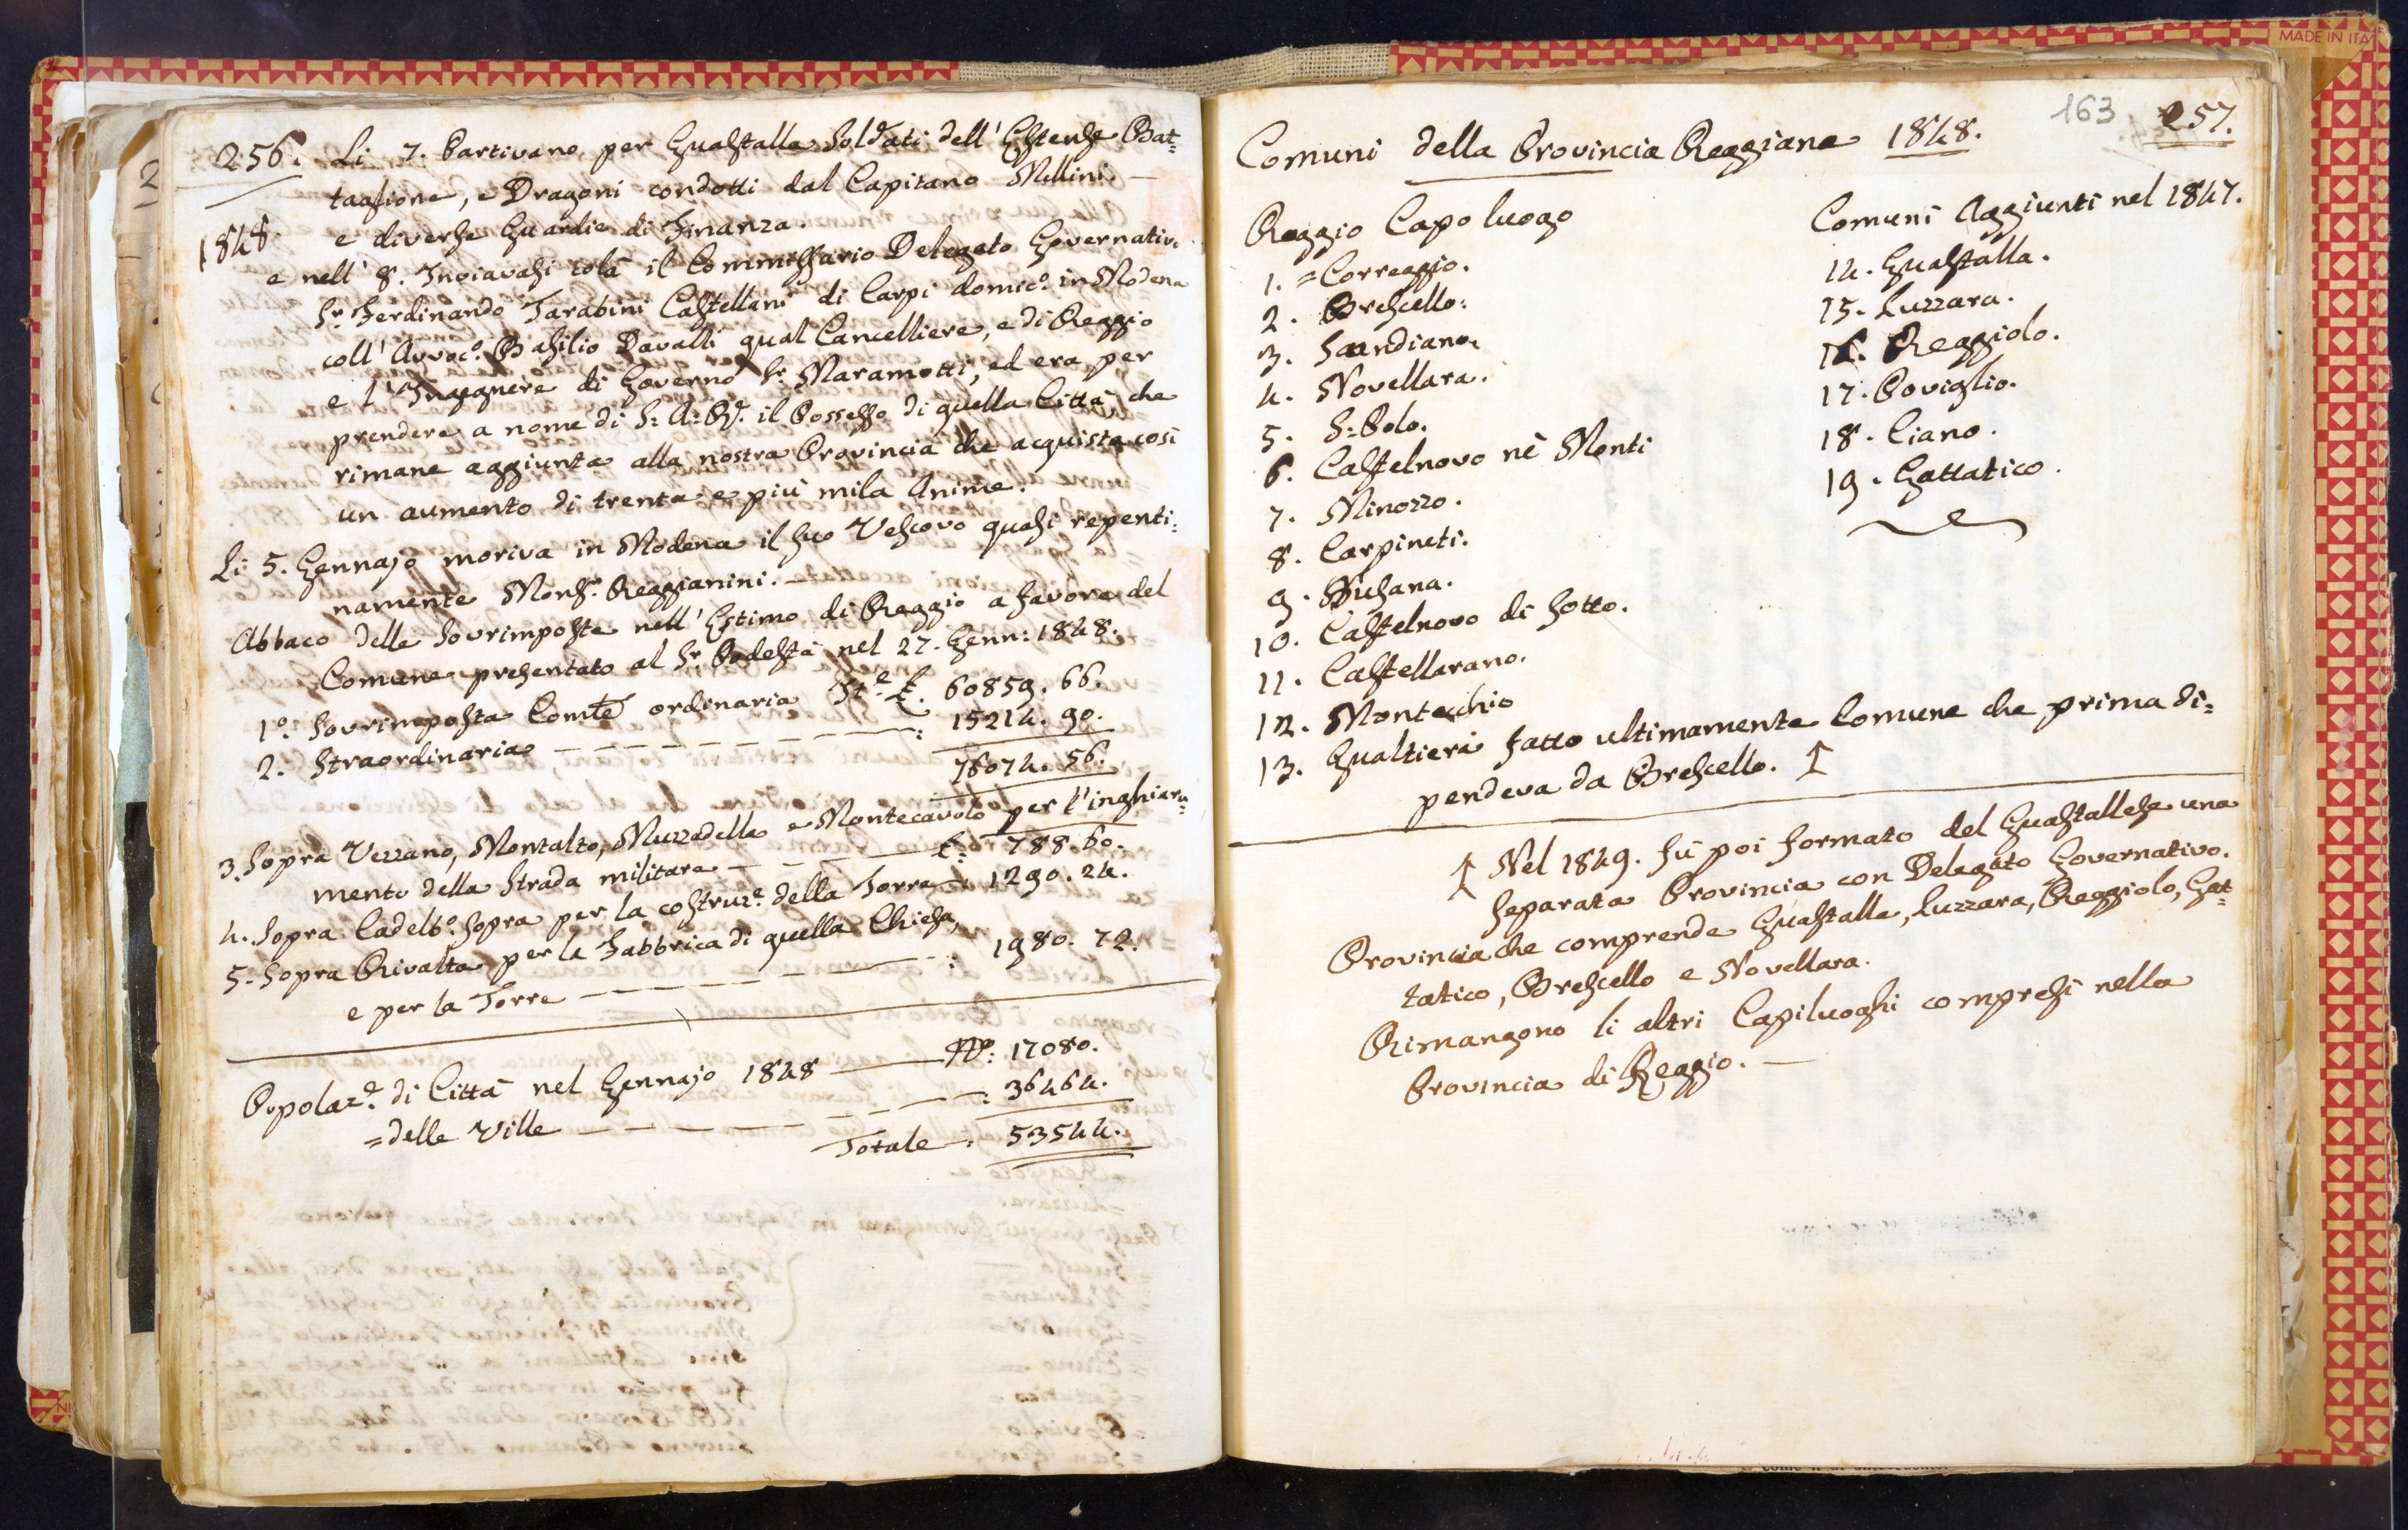 256. Li 7. Partivano per Guastalla Soldati dell' Estense Bat=
taglione, e Dragoni condotti dal Capitano Mellini. —
1848 e diverse Guardie di Finanza.
e nell' 8. Inviavasi colà il Commissario Delegato Governativo
Sr. Ferdinando Tarabini Castellani di Carpi domico. in Modena
coll' Avvoco. Basilio Davalli qual Cancelliere, e di Reggio
e l' Ingegnere di Governo Sr. Maramotti, ed era per
prendere a nome di S: A: R. il Possesso di quella Città, che
rimane aggiunta alla nostra Provincia che acquista così
un aumento di trenta e più mila Anime.
Li 5. Gennajo moriva in Modena il suo Vescovo quasi repenti=
namente Monsr. Reggianini. —
Abbaco delle Sovrimposte nell' Estimo di Reggio a favore del
Comune presentato al Sr. Podestà nel 27. Genn: 1848.
1o. Sovrimposta Comle ordinaria Ite. £. 60859. 66.
2. Straordinaria — — — — — : 15214. 90.
76074. 56.
3. Sopra Vezzano, Montalto, Muzzadella e Montecavolo per l'inghiara=
mento della Strada militare — — — £: 788. 60.
4. Sopra Cadelbo. Sopra per la costruze. della Torre : 1290. 24.
5. Sopra Rivalta per la Fabbrica di quella Chiesa,
e per la Torre — — — — — : 1980. 72.
Popolaze. di Città nel Gennajo 1848 — No: 17080.
= delle Ville — — — — — : 36464.
Totale : 53544.
163 257.
Comuni della Provincia Reggiana 1848.
Reggio Capo luogo
1. = Correggio.
2. Brescello.
3. Scandiano.
4. Novellara.
5. S: Polo.
6. Castelnovo nè Monti
7. Minozzo.
8. Carpineti.
9. Busana.
10. Castelnovo di Sotto.
11. Castellarano.
12. Montechio
13. Gualtieri fatto ultimamente Comune che prima di=
pendeva da Brescello. ↑
Comuni Aggiunti nel 1847.
14. Guastalla.
15. Luzzara.
16. Reggiolo.
17. Poviglio.
18. Ciano.
19. Gattatico.
↑ Nel 1849. fù poi formato del Guastallese una
separata Provincia con Delegato Governativo.
Provincia che comprende Guastalla, Luzzara, Reggiolo, Gat=
tatico, Brescello e Novellara.
Rimangono li altri Capiluoghi compresi nella
Provincia di Reggio. —
MADE IN ITA